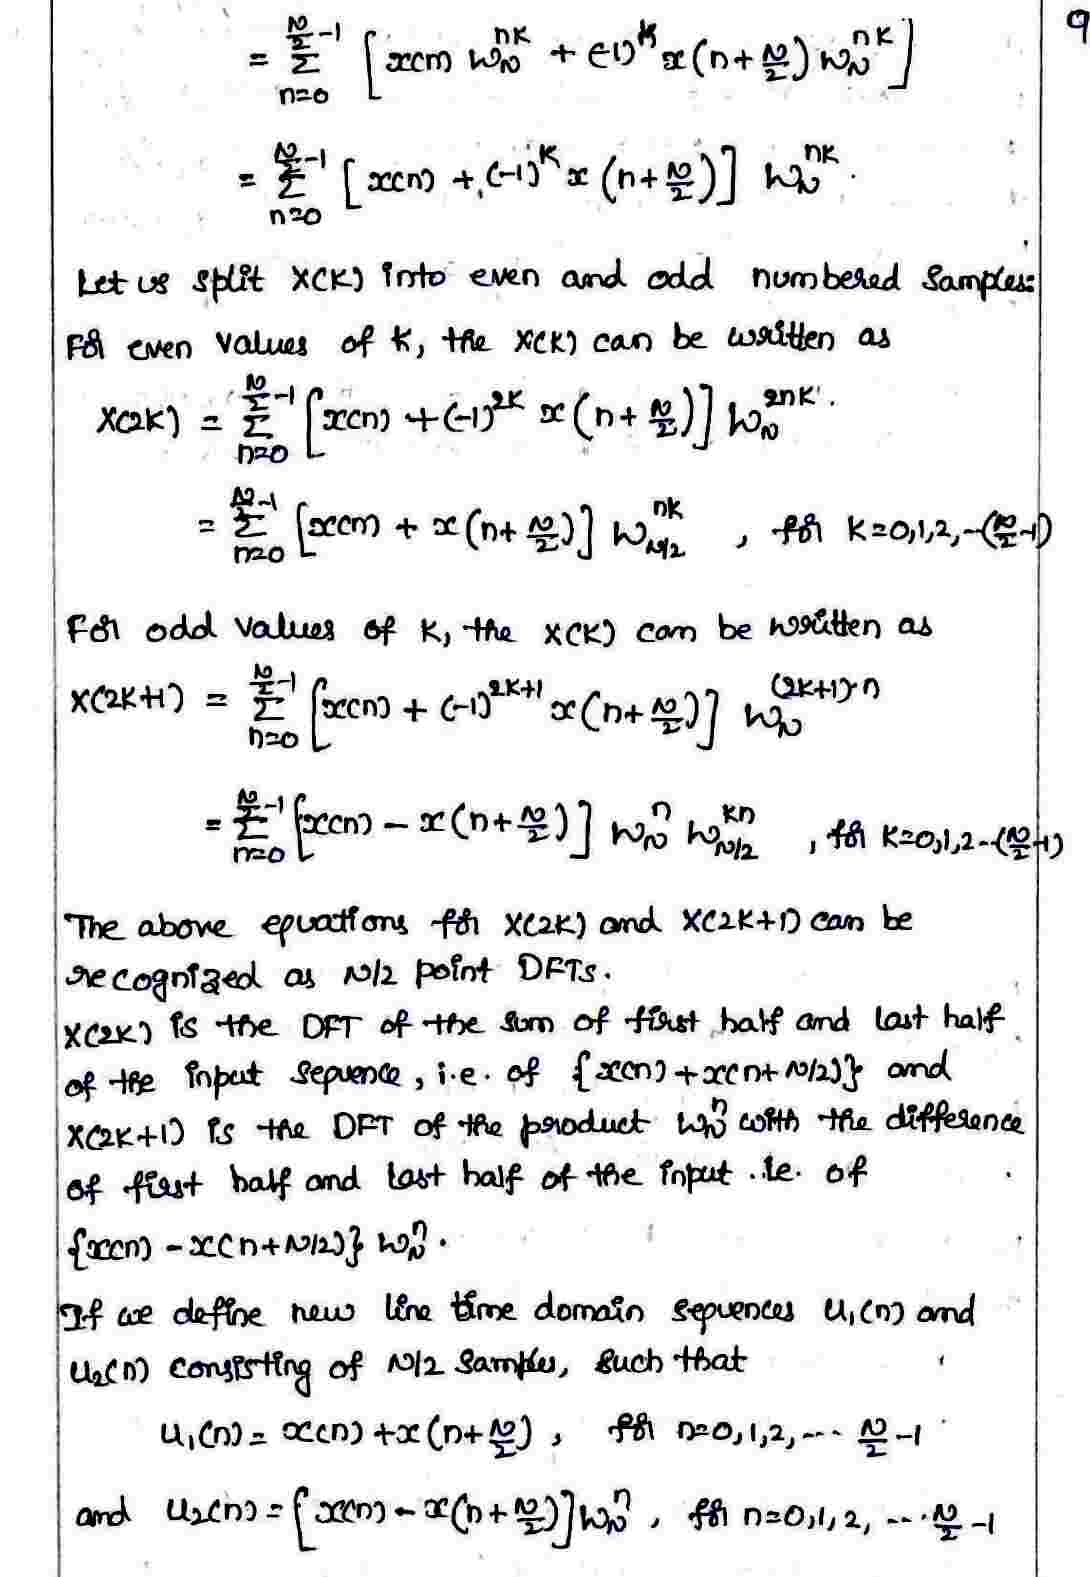 9
= \sum_{n=0}^{\frac{N}{2}-1} [x(n) W_N^{nK} + (-1)^K x(n+\frac{N}{2}) W_N^{nK}]
= \sum_{n=0}^{\frac{N}{2}-1} [x(n) + (-1)^K x(n+\frac{N}{2})] W_N^{nK}.
Let us split X(K) into even and odd numbered samples:
For even values of K, the X(K) can be written as
X(2K) = \sum_{n=0}^{\frac{N}{2}-1} [x(n) + (-1)^{2K} x(n+\frac{N}{2})] W_N^{2nK}.
= \sum_{n=0}^{\frac{N}{2}-1} [x(n) + x(n+\frac{N}{2})] W_{N/2}^{nK}, for K=0,1,2,--(\frac{N}{2}-1)
For odd values of K, the X(K) can be written as
X(2K+1) = \sum_{n=0}^{\frac{N}{2}-1} [x(n) + (-1)^{2K+1} x(n+\frac{N}{2})] W_N^{(2K+1)\cdot n}
= \sum_{n=0}^{\frac{N}{2}-1} [x(n) - x(n+\frac{N}{2})] W_N^n W_{N/2}^{Kn}, for K=0,1,2--(\frac{N}{2}-1)
The above equations for X(2K) and X(2K+1) can be
recognized as N/2 point DFTs.
X(2K) is the DFT of the sum of first half and last half
of the input sequence, i.e. of {x(n)+x(n+N/2)} and
X(2K+1) is the DFT of the product W_N^n with the difference
of first half and last half of the input .ie. of
{x(n) - x(n+N/2)} W_N^n.
If we define new line time domain sequences u_1(n) and
u_2(n) consisting of N/2 samples, such that
u_1(n) = x(n) + x(n+\frac{N}{2}), for n=0,1,2,--- \frac{N}{2}-1
and u_2(n) = [x(n) - x(n+\frac{N}{2})] W_N^n, for n=0,1,2, --- \frac{N}{2}-1